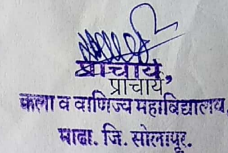 प्राचार्य,
प्राचार्य
कला व वाणिज्य महाविद्यालय,
माढा. जि. सोलापूर.